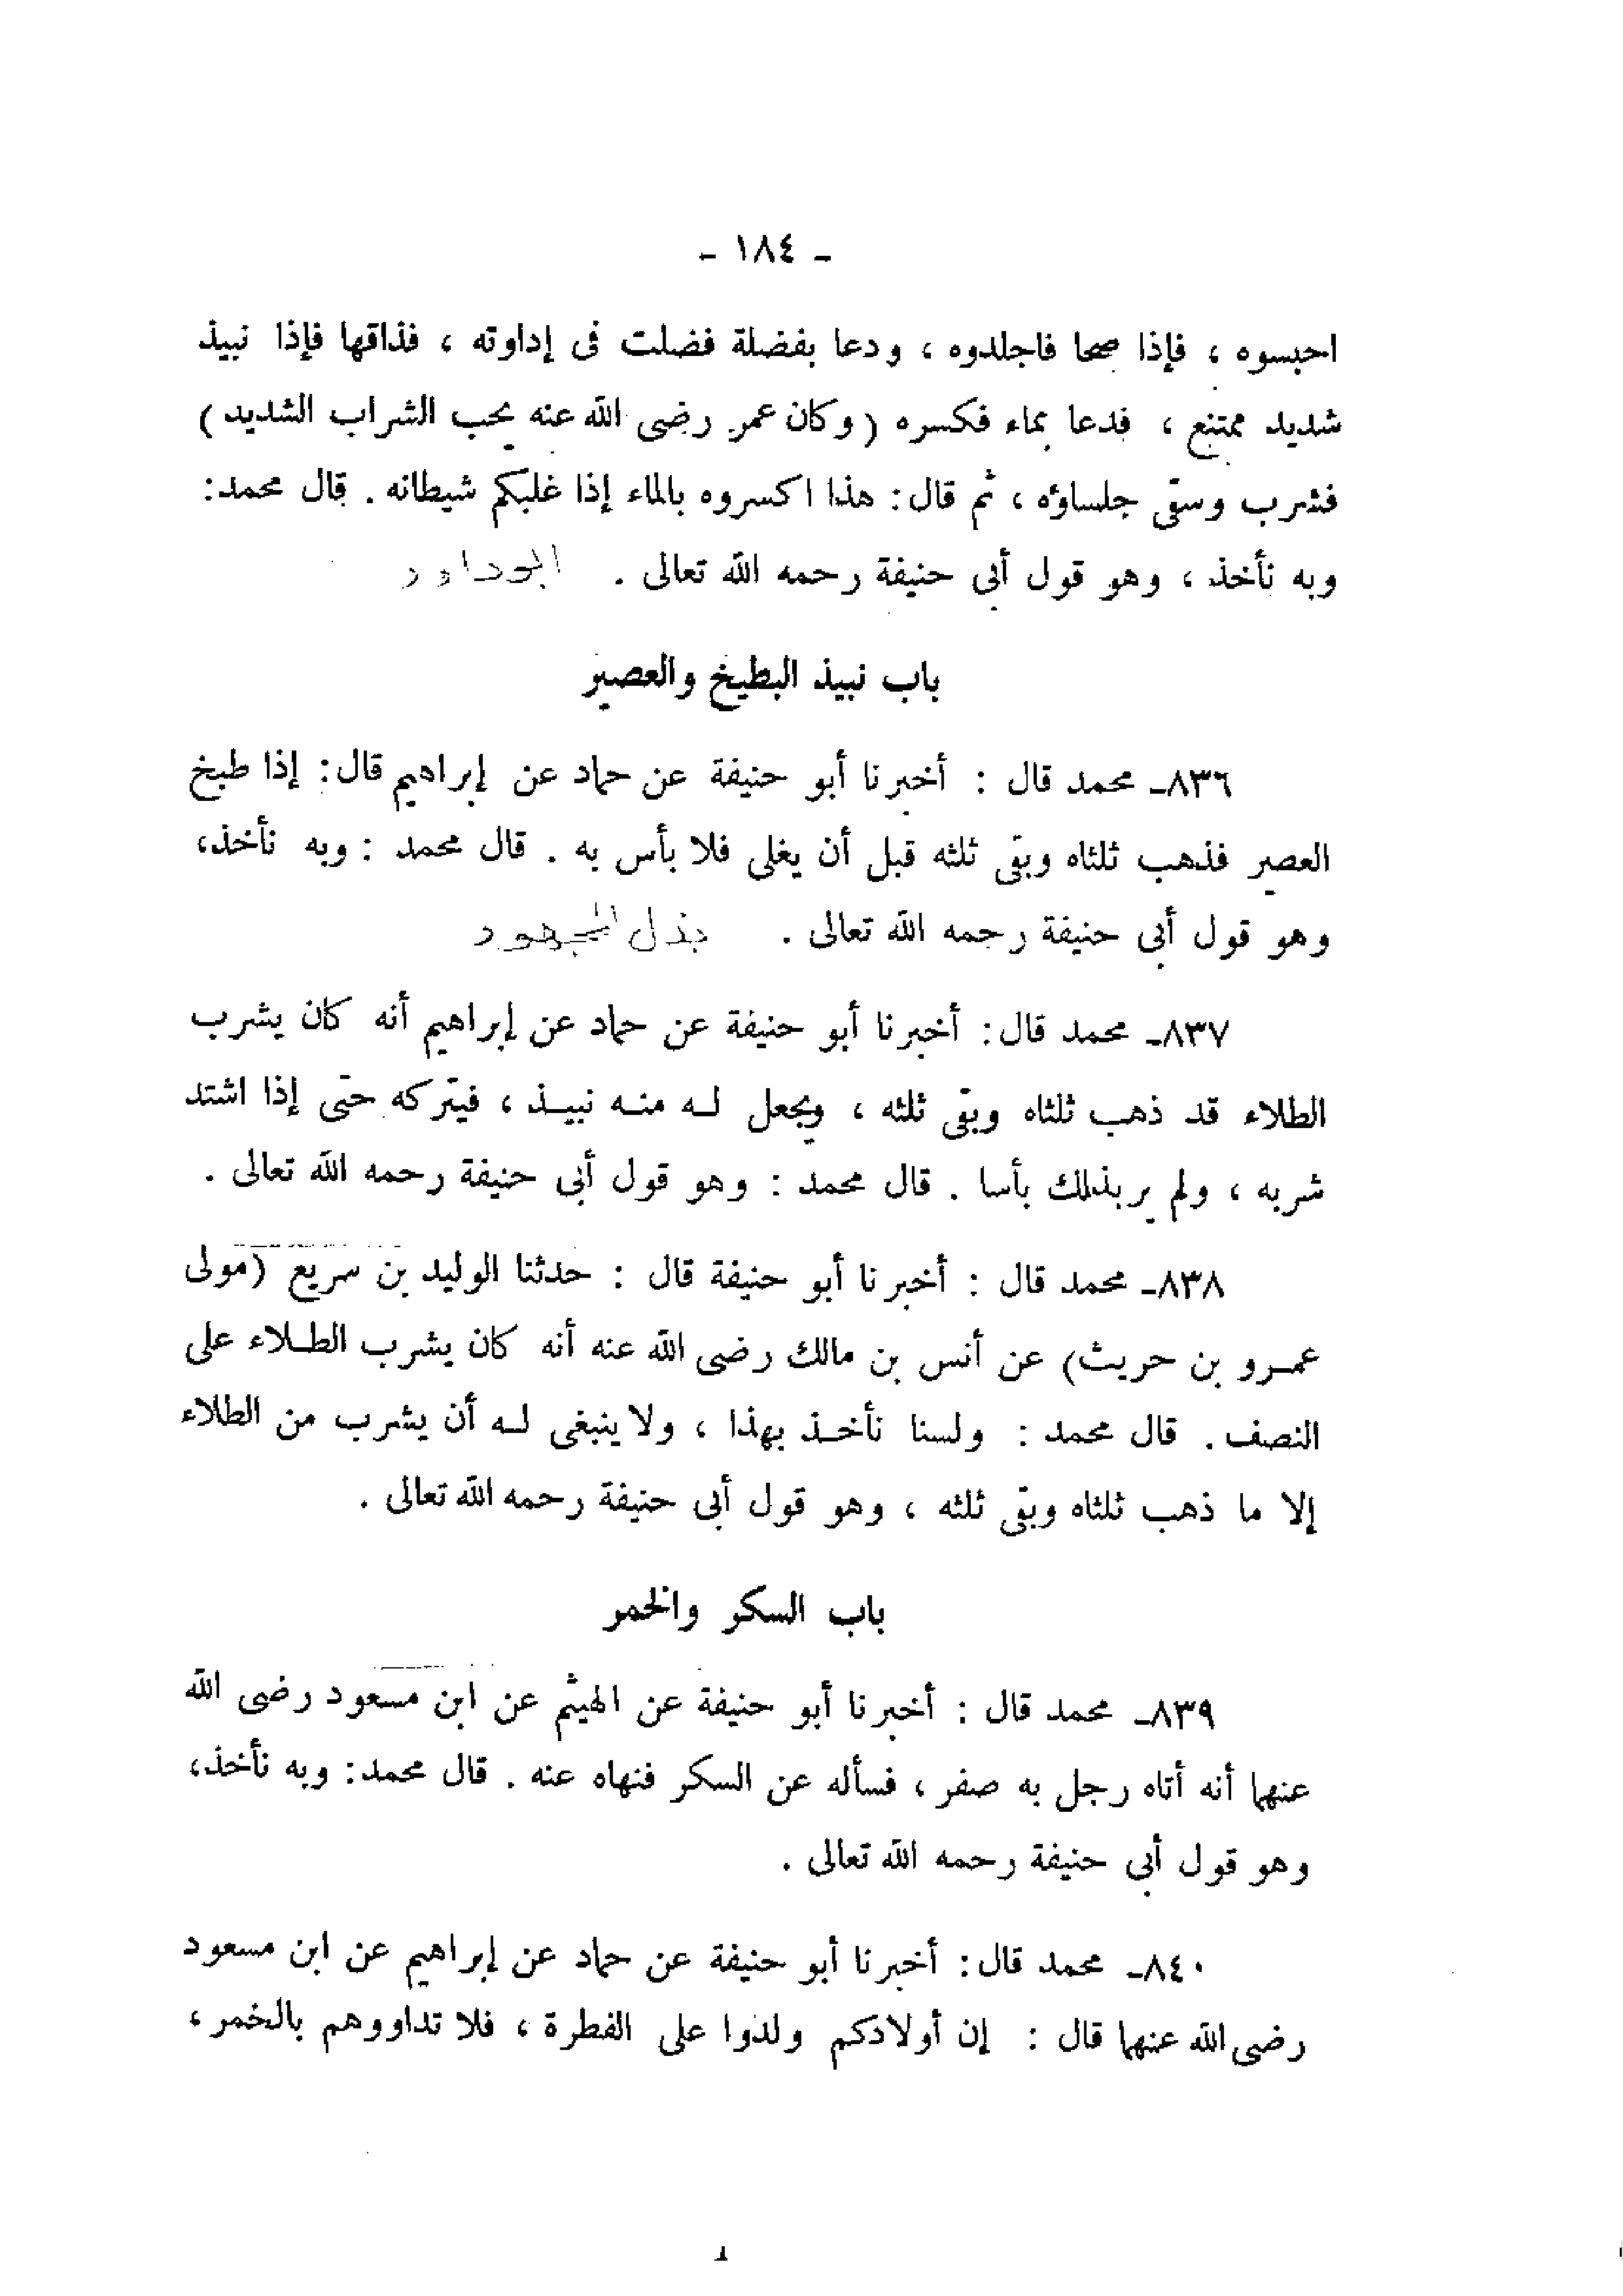 - ١٨٤ -
احبسوه ، فإذا صحا فاجلدوه ، ودعا بفضلة فضلت فى إداوته ، فذاقها فإذا نبيذ
شديد ممتنع ، فدعا بماء فكسره ( وكان عمر رضى الله عنه يحب الشراب الشديد )
فشرب وسقى جلساؤه ، ثم قال: هذا اكسروه بالماء إذا غلبكم شيطانه . قال محمد:
وبه نأخذ ، وهو قول أبى حنيفة رحمه الله تعالى . ابوداود
باب نبيذ البطيخ والعصير
٨٣٦- محمد قال : أخبرنا أبو حنيفة عن حماد عن إبراهيم قال: إذا طبخ
العصير فذهب ثلثاه وبقى ثلثه قبل أن يغلى فلا بأس به . قال محمد : وبه نأخذ،
وهو قول أبى حنيفة رحمه الله تعالى . بذل المجهود
٨٣٧- محمد قال: أخبرنا أبو حنيفة عن حماد عن إبراهيم أنه كان يشرب
الطلاء قد ذهب ثلثاه وبقى ثلثه ، ويجعل له منه نبيذ ، فيتركه حتى إذا اشتد
شربه ، ولم ير بذلك بأسا . قال محمد : وهو قول أبى حنيفة رحمه الله تعالى .
٨٣٨- محمد قال : أخبرنا أبو حنيفة قال : حدثنا الوليد بن سريع (مولى
عمرو بن حريث) عن أنس بن مالك رضى الله عنه أنه كان يشرب الطلاء على
النصف . قال محمد : ولسنا نأخذ بهذا ، ولا ينبغى له أن يشرب من الطلاء
إلا ما ذهب ثلثاه وبقى ثلثه ، وهو قول أبى حنيفة رحمه الله تعالى .
باب السكر والخمر
٨٣٩- محمد قال : أخبرنا أبو حنيفة عن الهيثم عن ابن مسعود رضى الله
عنهما أنه أتاه رجل به صفر ، فسأله عن السكر فنهاه عنه . قال محمد: وبه نأخذ،
وهو قول أبى حنيفة رحمه الله تعالى .
٨٤٠- محمد قال: أخبرنا أبو حنيفة عن حماد عن إبراهيم عن ابن مسعود
رضى الله عنهما قال : إن أولادكم ولدوا على الفطرة ، فلا تداووهم بالخمر ،